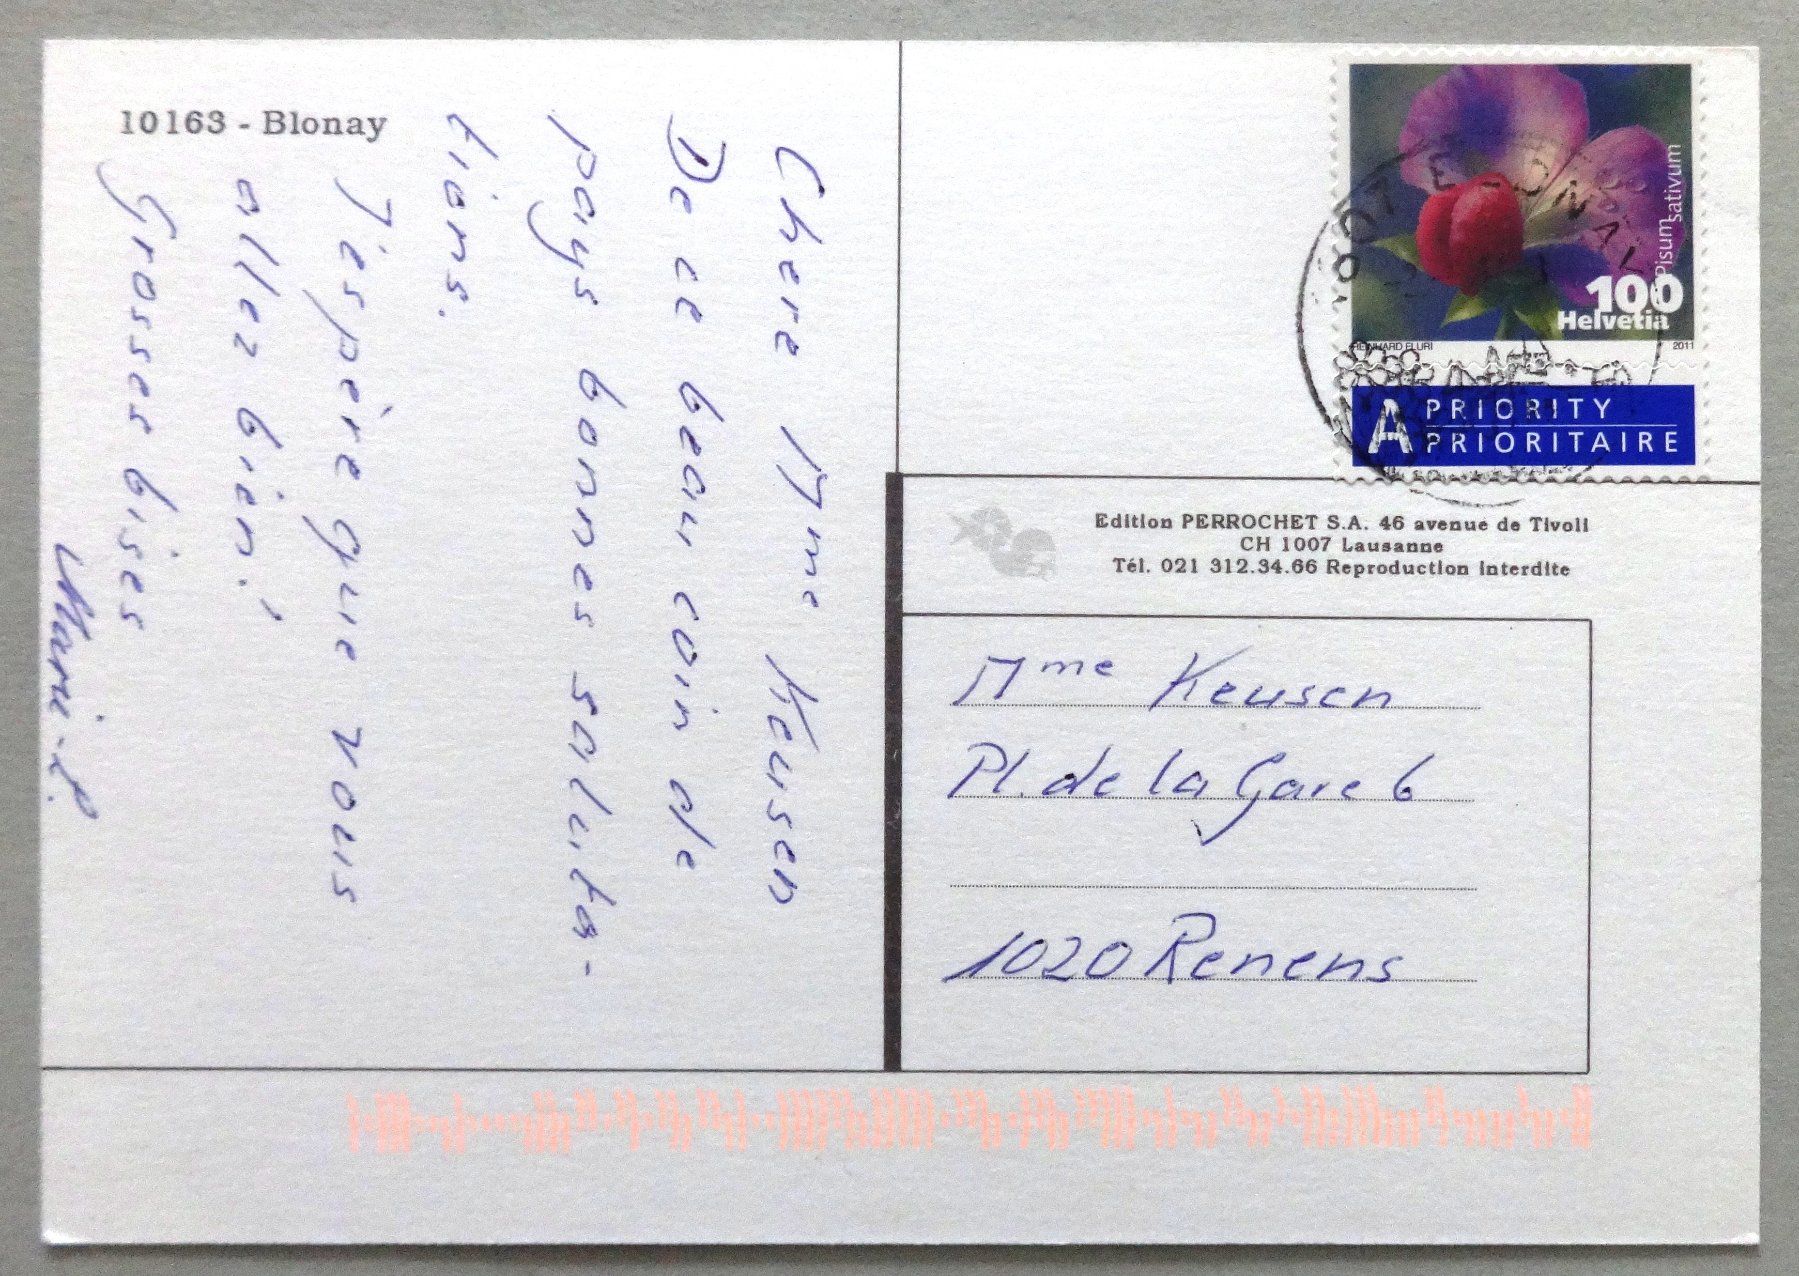 10163 - Blonay
Chere Mme Keusen
De ce beau coin de
pays bonnes saluta-
tions.
J'espère que vous
allez bien!
Grosses bises
Marie-P.
Pisum sativum
100
Helvetia
REINHARD FLURI 2011
A PRIORITY
PRIORITAIRE
Edition PERROCHET S.A. 46 avenue de Tivoli
CH 1007 Lausanne
Tél. 021 312.34.66 Reproduction interdite
Mme Keusen
Pl. de la Gare 6
1020 Renens